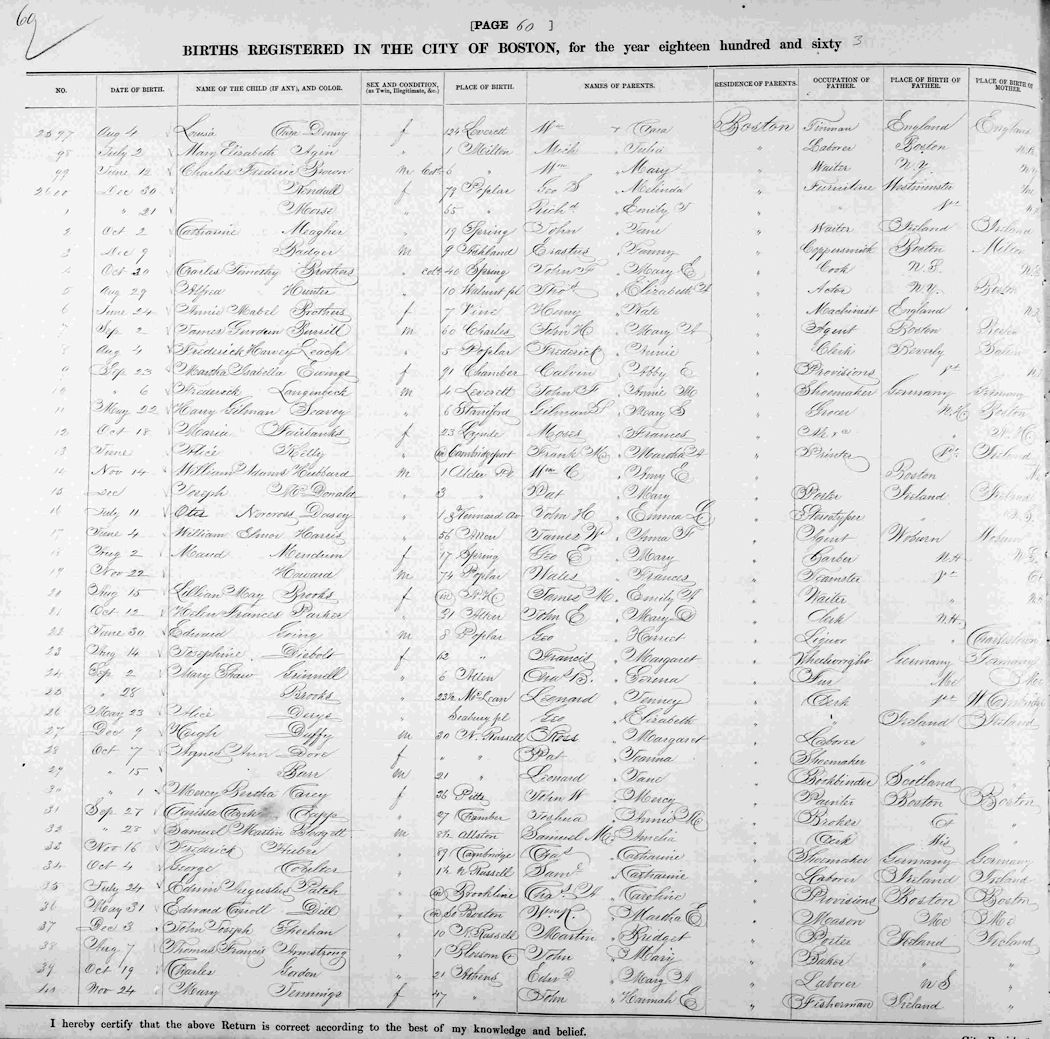 60
[PAGE 60 ]
BIRTHS REGISTERED IN THE CITY OF BOSTON, for the year eighteen hundred and sixty 3
NO. DATE OF BIRTH. NAME OF THE CHILD (IF ANY), AND COLOR. SEX AND CONDITION, (as Twin, Illegitimate, &c.) PLACE OF BIRTH. NAMES OF PARENTS. RESIDENCE OF PARENTS. OCCUPATION OF FATHER. PLACE OF BIRTH OF FATHER. PLACE OF BIRTH OF MOTHER.
2597 Aug 4 Louisa Denny f 124 Leverett Wm & Clara Boston Tinman England England
98 July 2 Mary Elisabeth Agin " 1 Milton Mich " Julia " Laborer Boston
99 June 12 Charles Frederic Brown m Cold 6 " Wm " Mary " Waiter N.Y.
2600 Dec 30 Kendall f 79 Poplar Geo S " Melinda " Furniture Westminster
1 " 21 Morse " 55 " Richd " Emily "
2 Oct 2 Catharine Meagher " 19 Spring John " Jane " Waiter Ireland Ireland
3 Dec 9 Badger m 9 Ashland Erastus " Fanny " Coppersmith Boston Milton
4 Oct 30 Charles Timothy Brothers " cold 40 Spring John F " Mary E " Cook N.S.
5 Aug 29 Alfred Hunter " 10 Walnut pl Thos " Elizabeth A " Actor N.Y. Boston
6 June 24 Annie Mabel Brothers f 7 Vine Henry " Kate " Machinist England
7 Sep 2 James Gurdon Burrill m 60 Charles John H " Mary A " Agent Boston Boston
8 Aug 4 Frederick Harvey Leach " 5 Poplar Frederick " Annie " Clerk Beverly Boston
9 Sep 23 Martha Isabella Ewings f 91 Chamber Calvin " Abby E " Provisions
10 " 6 Frederick Langenbeck m 4 Leverett John F " Annie M " Shoemaker Germany Germany
11 May 22 Harry Gilman Seavey " 6 Staniford Gilman S " Mary S " Grocer N.H. Boston
12 Oct 18 Maria Fairbanks f 23 Lynde Moses " Frances " " N.H.
13 June Alice Kelly " in Cambridgeport Frank M " Martha A " Printer Ireland
14 Nov 14 William Adams Hubbard m 1 Wm C " Amy E " Boston
15 Dec Joseph McDonald " 3 " Pat " Mary " Porter Ireland Ireland
16 July 11 Otis Norcross Davey " 13 Kennard Av John H " Emma L " Stereotyper "
17 June 4 William Elmor Harris " 56 Allen James W " Anna F " Agent Woburn Woburn
18 Aug 2 Maud Mendum f 17 Spring Geo E " Mary " Barber N.H.
19 Nov 22 Howard m 74 Poplar Wales " Frances " Teamster
20 Aug 15 Lillian May Brooks f in N.H. James M " Emily A " Waiter "
21 Oct 12 Helen Frances Parker " 31 Allen John E " Mary D " Clerk N.H.
22 June 30 Edward Ewing m 8 Poplar Geo " Harriet " Liquor " Charlestown
23 Aug 14 Josephine Diebolt f 12 " Francis " Margaret " Wheelwright Germany Germany
24 Sep 2 Mary Shaw Grinnell " 6 Allen Chas B. " " Fur Me Me
25 " 28 Brooks " 23½ McLean Leonard " " Clerk W Cambridge
26 May 23 Alice " Seabury pl Geo " Elizabeth " " Ireland Ireland
27 Dec 9 Hugh Duffy m 20 N. Russell Ross " Margaret " Laborer "
28 Oct 7 Agnes Ann Dore f " " Pat " Joanna " Shoemaker "
29 " 15 Barr m 21 " Leonard " Jane " Bookbinder Scotland
30 " 1 Mercy Bertha Carey f 36 Pitts John W " Mercy " Painter Boston Boston
31 Sep 27 Clarissa Clark Capp " 27 Chamber Joshua " Annie M " Broker Ct "
32 " 28 Samuel Martin Blodgett m 3½ Allston Samuel M. " Amelia " Clerk Wis "
33 Nov 16 Frederick Huber " 89 Cambridge Chas " Catharine " Shoemaker Germany Germany
34 Oct 4 George " 14 N Russell Saml " Catharine " Laborer Ireland Ireland
35 July 24 Edwin Augustus Patch " in Brookline Chas A " Caroline " Provisions Boston Boston
36 May 31 Edward Carroll Dill " in So Boston Wm K. " Martha E " Meason Me Me
37 Dec 3 John Joseph Sheehan " 10 N. Russell Martin " Bridget " Porter Ireland Ireland
38 Aug 7 Thomas Francis Armstrong " 1 Blossom Ct John " Mary " Baker " "
39 Oct 19 Charles Gordon " 21 Athens Edwd " Mary A " Laborer N S "
40 Nov 24 Mary Jennings f 47 " John " Hannah E " Fisherman Ireland "
I hereby certify that the above Return is correct according to the best of my knowledge and belief.